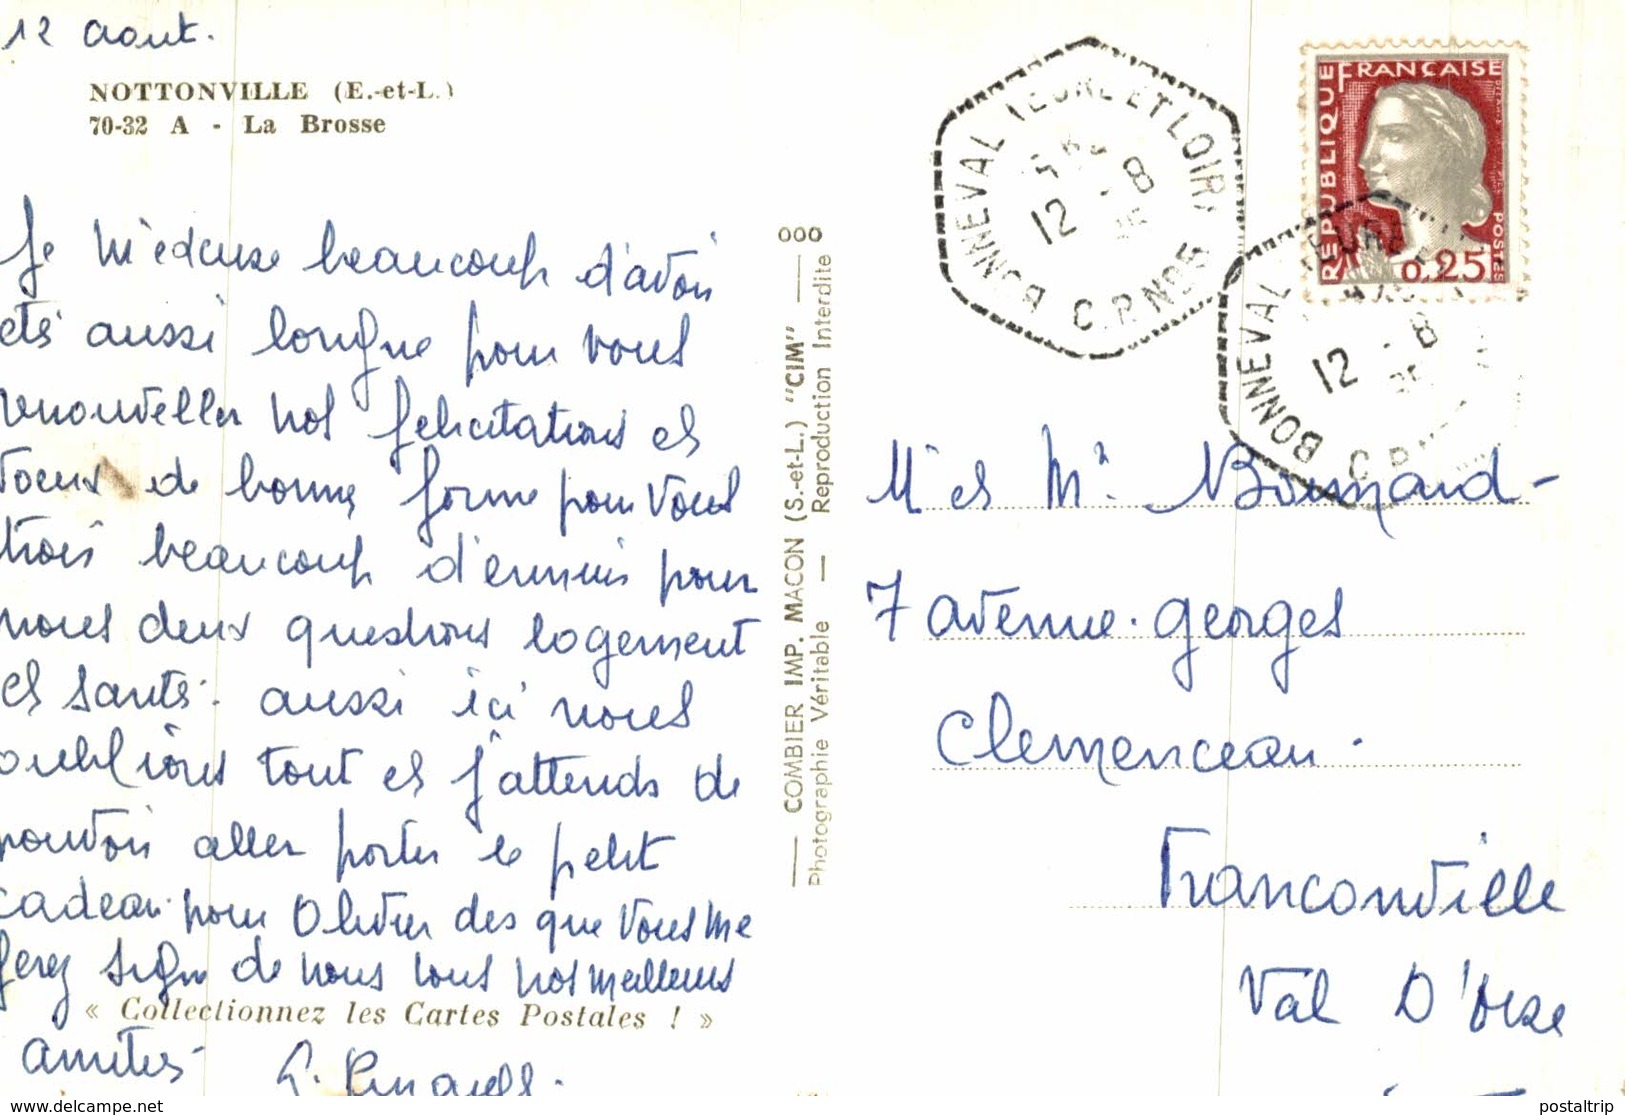 12 aout.
NOTTONVILLE (E.-et-L.)
70-32 A - La Brosse
Je m'excuse beaucoup d'avoir
été aussi longue pour vous
renouveller nos felicitations et
voeux de bonne forme pour vous
trois beaucoup d'ennuis pour
nous deux questions logement
et santé. aussi ici nous
oublions tout et j'attends de
pouvoir aller porter le petit
cadeau pour Olivier des que vous me
ferez signe de nous tous nos meilleurs
« Collectionnez les Cartes Postales ! »
amitiés
000
COMBIER IMP. MACON (S.-et-L.) "CIM"
Photographie Véritable — Reproduction Interdite
BONNEVAL (EURE ET LOIR)
12 - 8
C.P. N°5
REPUBLIQUE FRANÇAISE
POSTES
0,25
BONNEVAL
12 - 8
C.P.
M et Mme
7 avenue. georges
Clemenceau.
Franconville
Val D'Oise
delcampe.net
postaltrip